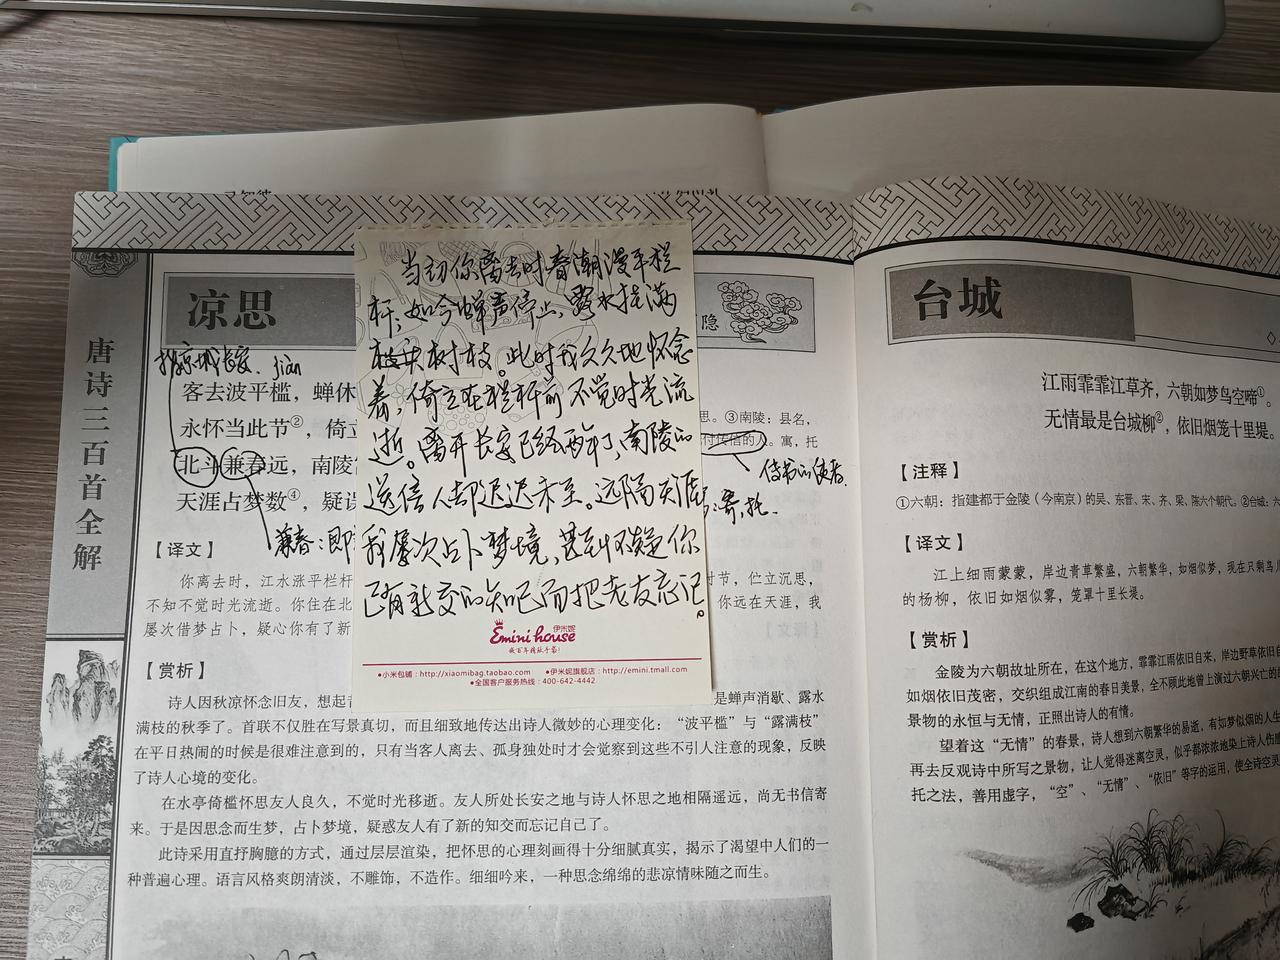 唐诗三百首全解
凉思
隐
指京城长安. jiān
客去波平槛，蝉休
永怀当此节②，倚立
北斗兼春远，南陵
天涯占梦数④，疑误
兼春：即
【译文】
你离去时，江水涨平栏杆
不知不觉时光流逝。你住在北
屡次借梦占卜，疑心你有了新
当初你离去时春潮漫平栏
杆，如今蝉声停止，露水挂满
树枝。此时我久久地怀念
着，倚立在栏杆前不觉时光流
逝。离开长安已经两年了，南陵的
送信人却迟迟未至。远隔天涯
我屡次占卜梦境，甚至怀疑你
已有新交的知己而把老友忘记。
伊米妮
Emini house
●小米包铺：http://xiaomibag.taobao.com ●伊米妮旗舰店：http://emini.tmall.com
●全国客户服务热线：400-642-4442
思。③南陵：县名，
付传信的人。寓，托
传书的使者.
：寄，托.
时节，伫立沉思，
你远在天涯，我
【赏析】
诗人因秋凉怀念旧友，想起
是蝉声消歇、露水
满枝的秋季了。首联不仅胜在写景真切，而且细致地传达出诗人微妙的心理变化：“波平槛”与“露满枝”
在平日热闹的时候是很难注意到的，只有当客人离去、孤身独处时才会觉察到这些不引人注意的现象，反映
了诗人心境的变化。
在水亭倚槛怀思友人良久，不觉时光移逝。友人所处长安之地与诗人怀思之地相隔遥远，尚无书信寄
来。于是因思念而生梦，占卜梦境，疑惑友人有了新的知交而忘记自己了。
此诗采用直抒胸臆的方式，通过层层渲染，把怀思的心理刻画得十分细腻真实，揭示了渴望中人们的一
种普遍心理。语言风格爽朗清淡，不雕饰，不造作。细细吟来，一种思念绵绵的悲凉情味随之而生。
台城
江雨霏霏江草齐，六朝如梦鸟空啼①。
无情最是台城柳②，依旧烟笼十里堤。
【注释】
①六朝：指建都于金陵（今南京）的吴、东晋、宋、齐、梁、陈六个朝代。②台城：
【译文】
江上细雨蒙蒙，岸边青草繁盛，六朝繁华，如烟似梦，现在只剩鸟儿
的杨柳，依旧如烟似雾，笼罩十里长堤。
【赏析】
金陵为六朝故址所在，在这个地方，霏霏江雨依旧自来，岸边野草依旧自
如烟依旧茂密，交织组成江南的春日美景，全不顾此地曾上演过六朝兴亡的
景物的永恒与无情，正照出诗人的有情。
望着这“无情”的春景，诗人想到六朝繁华的易逝，有如梦似烟的人生
再去反观诗中所写之景物，让人觉得迷离空灵，似乎都浓浓地染上诗人伤感
托之法，善用虚字，“空”、“无情”、“依旧”等字的运用，使全诗空灵